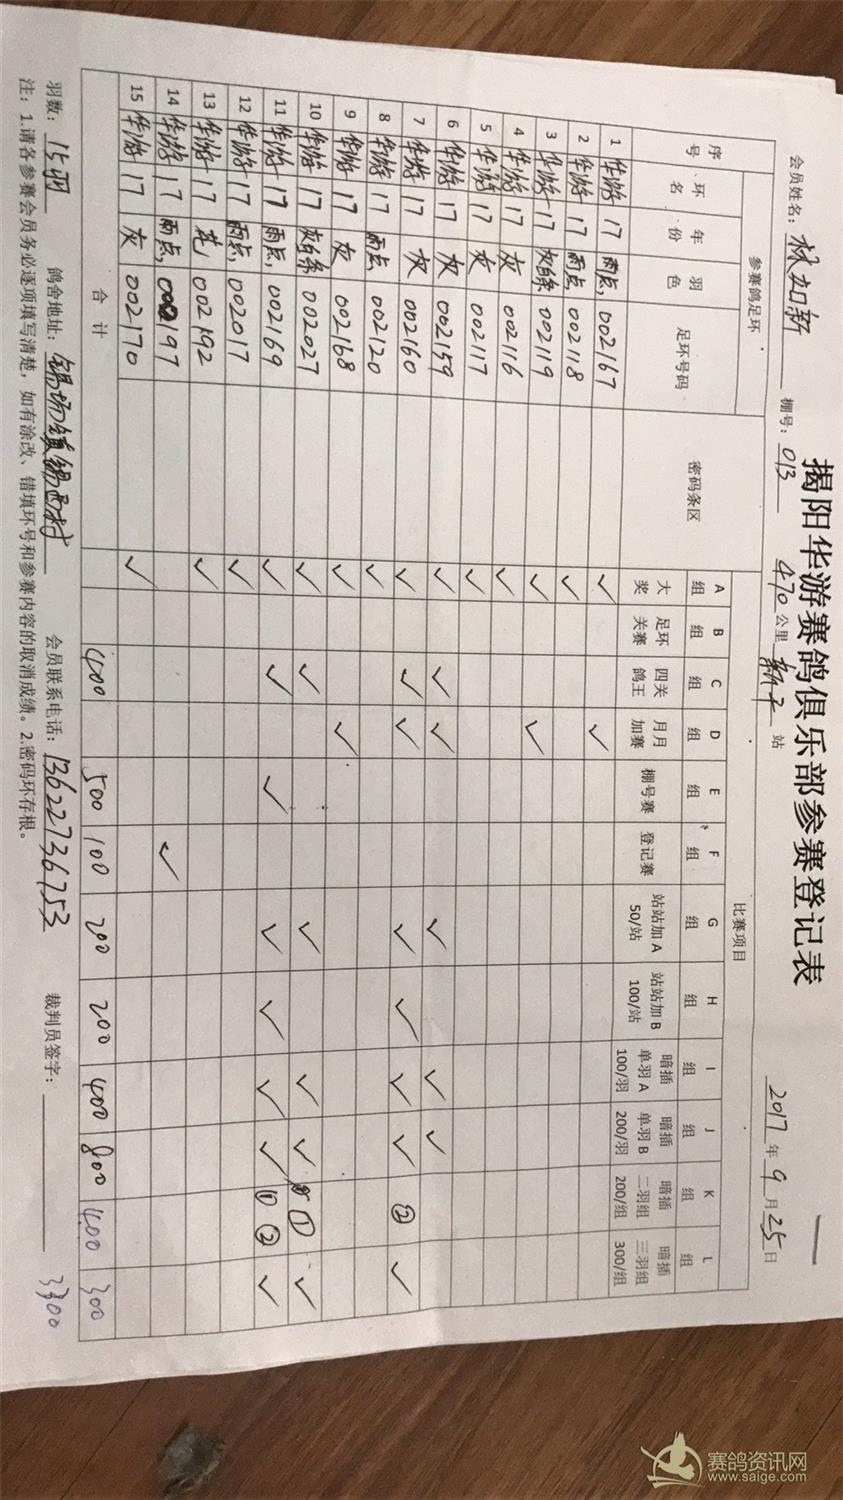 揭阳华游赛鸽俱乐部参赛登记表
会员姓名：林加新 棚号：013 470公里 新干站 2017年9月25日
参赛鸽足环 密码条区 比赛项目
序号 环名 年份 羽色 足环号码 A组 B组 C组 D组 E组 F组 G组 H组 I组 J组 K组 L组
大奖 足环关赛 四关鸽王 月月加赛 棚号赛 登记赛 站站加A 50/站 站站加B 100/站 暗插单羽A 100/羽 暗插单羽B 200/羽 暗插二羽组 200/组 暗插三羽组 300/组
1 华游 17 雨点 002167 ✓ ✓
2 华游 17 雨点 002118 ✓
3 华游 17 灰白条 002119 ✓ ✓
4 华游 17 灰 002116 ✓
5 华游 17 灰 002117 ✓
6 华游 17 灰 002159 ✓ ✓ ✓ ✓ ✓ ✓
7 华游 17 灰 002160 ✓ ✓ ✓ ✓ ✓ ✓ ✓ ② ✓
8 华游 17 雨点 002120 ✓
9 华游 17 灰 002168 ✓ ✓
10 华游 17 灰白条 002027 ✓ ✓ ✓ ✓ ✓ ① ✓
11 华游 17 雨点 002169 ✓ ✓ ✓ ✓ ✓ ✓ ✓ ① ② ✓
12 华游 17 雨点 002017 ✓
13 华游 17 花 002192 ✓
14 华游 17 雨点 002197 ✓
15 华游 17 灰 002170 ✓
合计 400 500 100 200 200 400 800 400 300
羽数：15羽 鸽舍地址：锡场镇锡西村 会员联系电话：13622736753 裁判员签字： 3300
注：1.请各参赛会员务必逐项填写清楚，如有涂改、错填环号和参赛内容的取消成绩。2.密码环存根。
赛鸽资讯网
www.saige.com